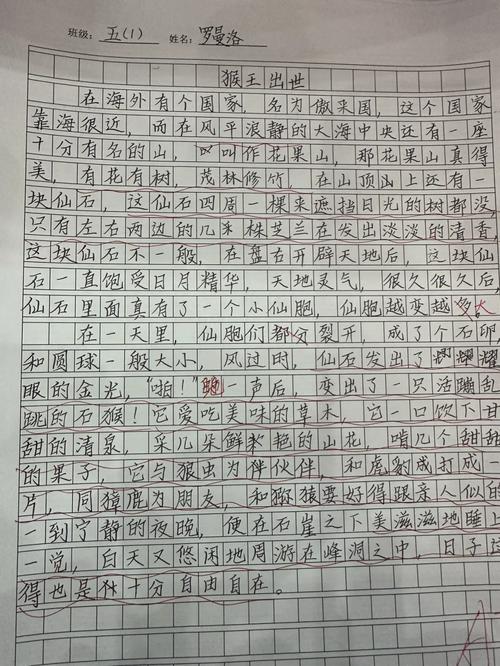 班级：五(1) 姓名：罗曼洛
猴王出世
在海外有个国家，名为傲来国，这个国家
靠海很近，而在风平浪静的大海中央还有一座
十分有名的山，叫作花果山，那花果山真得
美，有花有树，茂林修竹，在山顶山上还有一
块仙石，这仙石四周一棵来遮挡日光的树都没
只有左右两边的几株芝兰在发出淡淡的清香，
这块仙石不一般，在盘右开辟天地后，这块仙
石一直饱受日月精华，天地灵气，很久很久后，
仙石里面真有了一个小仙胞，仙胞越变越大。
在一天里，仙胞们都分裂开，成了个石卵，
和圆球一般大小，风过时，仙石发出了耀
眼的金光，“啪！”一声后，变出了一只活蹦乱
跳的石猴！它爱吃美味的草木，它一口饮下甘
甜的清泉，采几朵鲜艳的山花，啃几个甜甜
的果子，它与狼虫为伴伙伴，和虎豹成打成
片，同獐鹿为朋友，和猕猿要好得跟亲人似的
一到宁静的夜晚，便在石崖之下美滋滋地睡上
一觉，白天又悠闲地周游在峰洞之中，日子过
得也是十分自由自在。